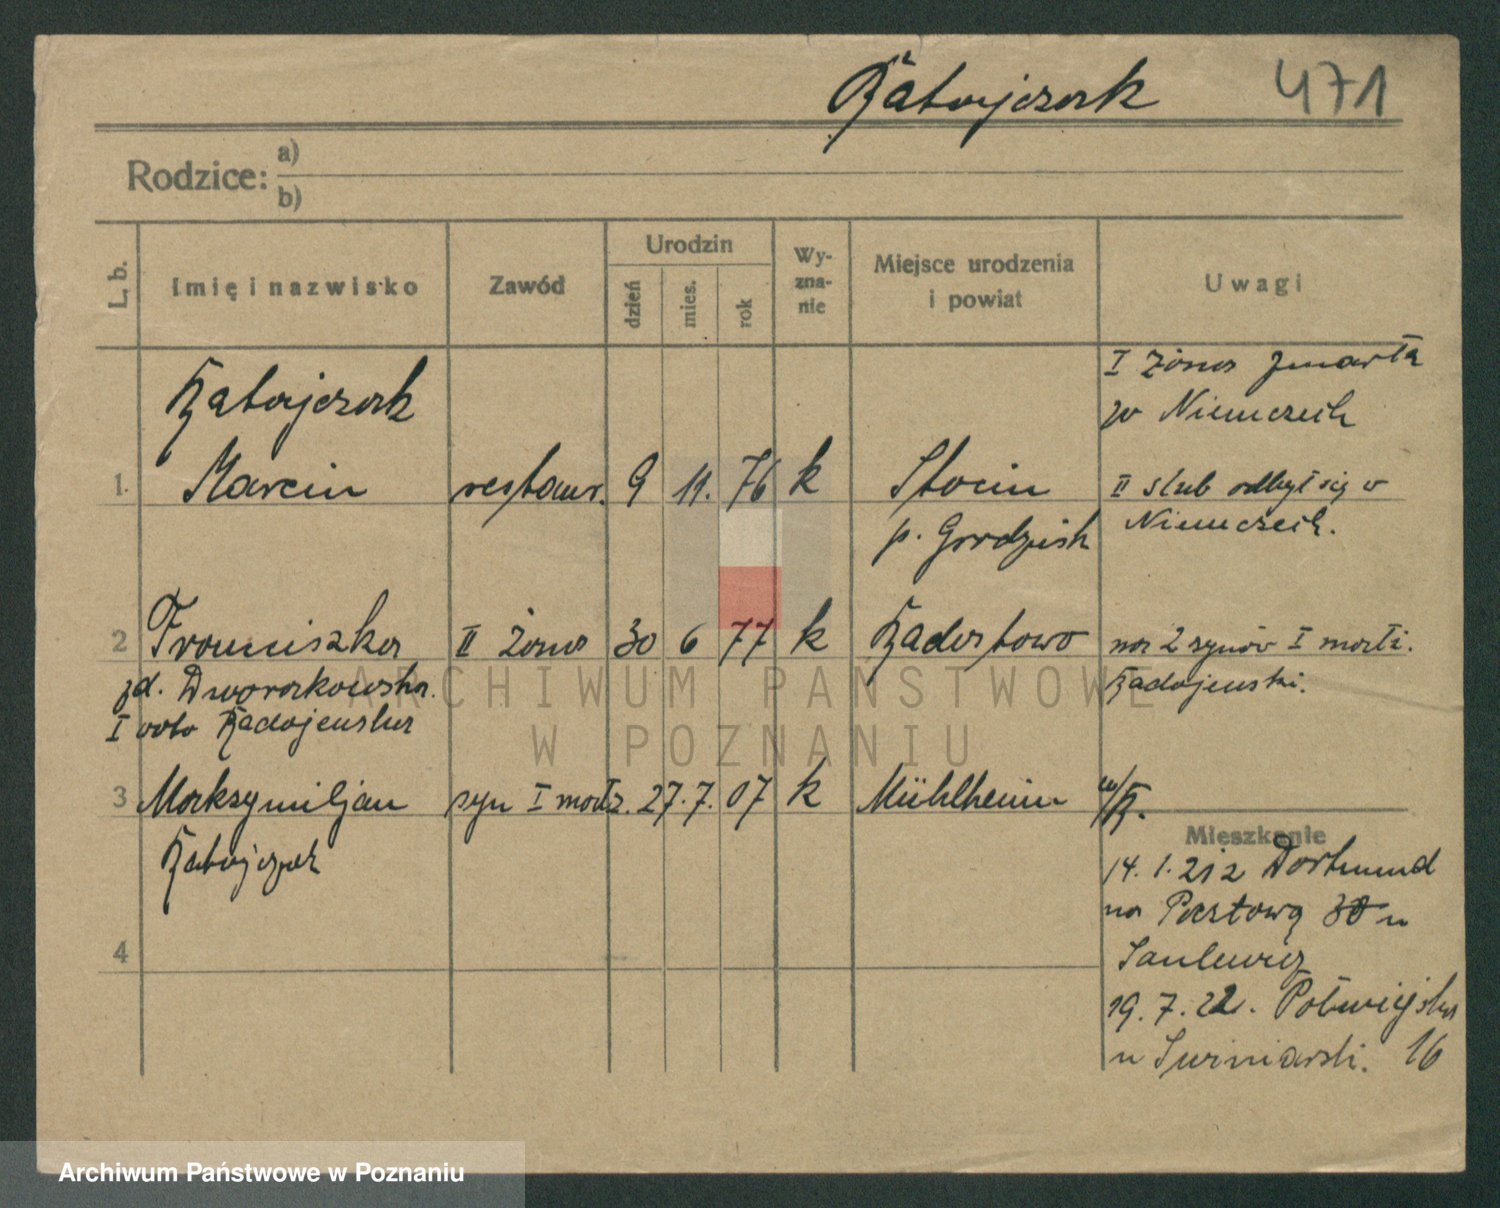 Ratajczak 471
Rodzice: a)
b)
L. b. Imię i nazwisko Zawód Urodzin dzień mies. rok Wyznanie Miejsce urodzenia i powiat Uwagi
I żona zmarła
w Niemczech
Ratajczak
1. Marcin restaur. 9 11. 76 k Stocin
II ślub odbył się w
p. Grodzisk
Niemczech.
2 Franciszka II żona 30 6 77 k
ma 2 synów I małż.
zd. Dworakowska.
Radojewski.
I voto Radojewska
3 Maksymiljan syn I małż. 27. 7. 07 k Mühlheim w/R.
Ratajczak
Mieszkanie
14. 1. 21 z Dortmund
na Pocztową 30 u
4
19. 7. 22. Półwiejska
u 16
ARCHIWUM PAŃSTWOWE
W POZNANIU
Archiwum Państwowe w Poznaniu